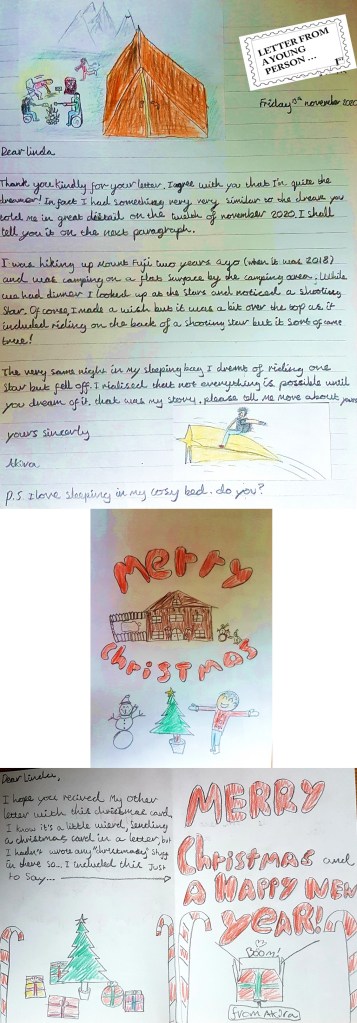 LETTER FROM
A YOUNG
PERSON ...
1st
Friday November 2020
Dear Linda
Thank you kindly for your letter. I agree with you that I'm quite the
dreamer! In fact I had something very very similar to the dream you
told me in great detail on the twelth of november 2020. I shall
tell you it on the next paragraph.
I was hiking up Mount Fuji two years ago (when it was 2018)
and was camping on a flat surface by the camping area. While
we had dinner I looked up at the stars and noticed a shooting
star. Of corse, I made a wish but it was a bit over the top as it
included riding on the back of a shooting star but it sort of came
true!
The very same night in my sleeping bag I dremt of riding one
star but fell off. I rialised that not everything is possible until
you dream of it. that was my story, please tell me more about yours
yours sincerly
Akira
P.S. I love sleeping in my cosy bed. do you?
Merry
Christmas
Dear Linda,
I hope you recived my other
letter with this christmas card.
I know it's a little wierd, sending
a christmas card in a letter, but
I hadn't wrote any "christmasy" stuff
in there so... I included this just
to say...
MERRY
Christmas and
A HAPPY NEW
YEAR!
BOOM!
from Akira